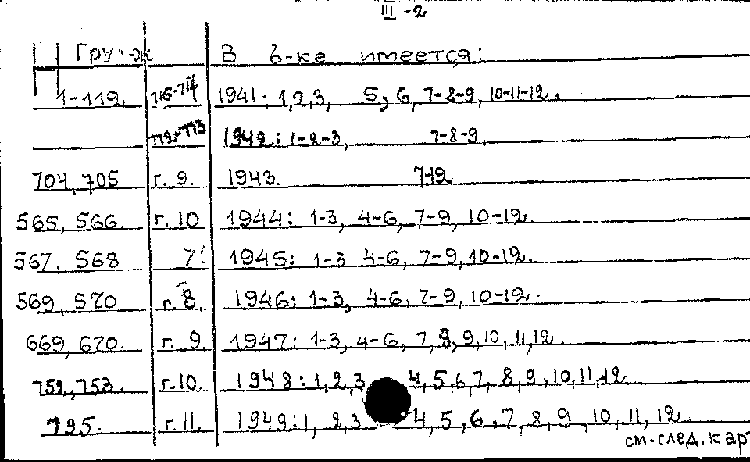 III-2
В б-ке имеется:
1-119. 1941. 1,2,3, 5, 6, 7-8-9, 10-11-12.
1942: 1-2-3, 7-8-9.
704, 705 г. 9. 1943. 7-12
565, 566 г. 10 1944: 1-3, 4-6, 7-9, 10-12.
567, 568 1945: 1-3 4-6, 7-9, 10-12.
569, 570 г. 8. 1946: 1-3, 4-6, 7-9, 10-12.
669, 670. г. 9 1947: 1-3, 4-6, 7, 8, 9, 10, 11, 12.
752, 753. г. 10. 1948: 1, 2, 3 4, 5 6, 7, 8, 9, 10, 11, 12
795. г. 11. 1949: 1, 2, 3 4, 5, 6, 7, 8, 9, 10, 11, 12
см. след. кар